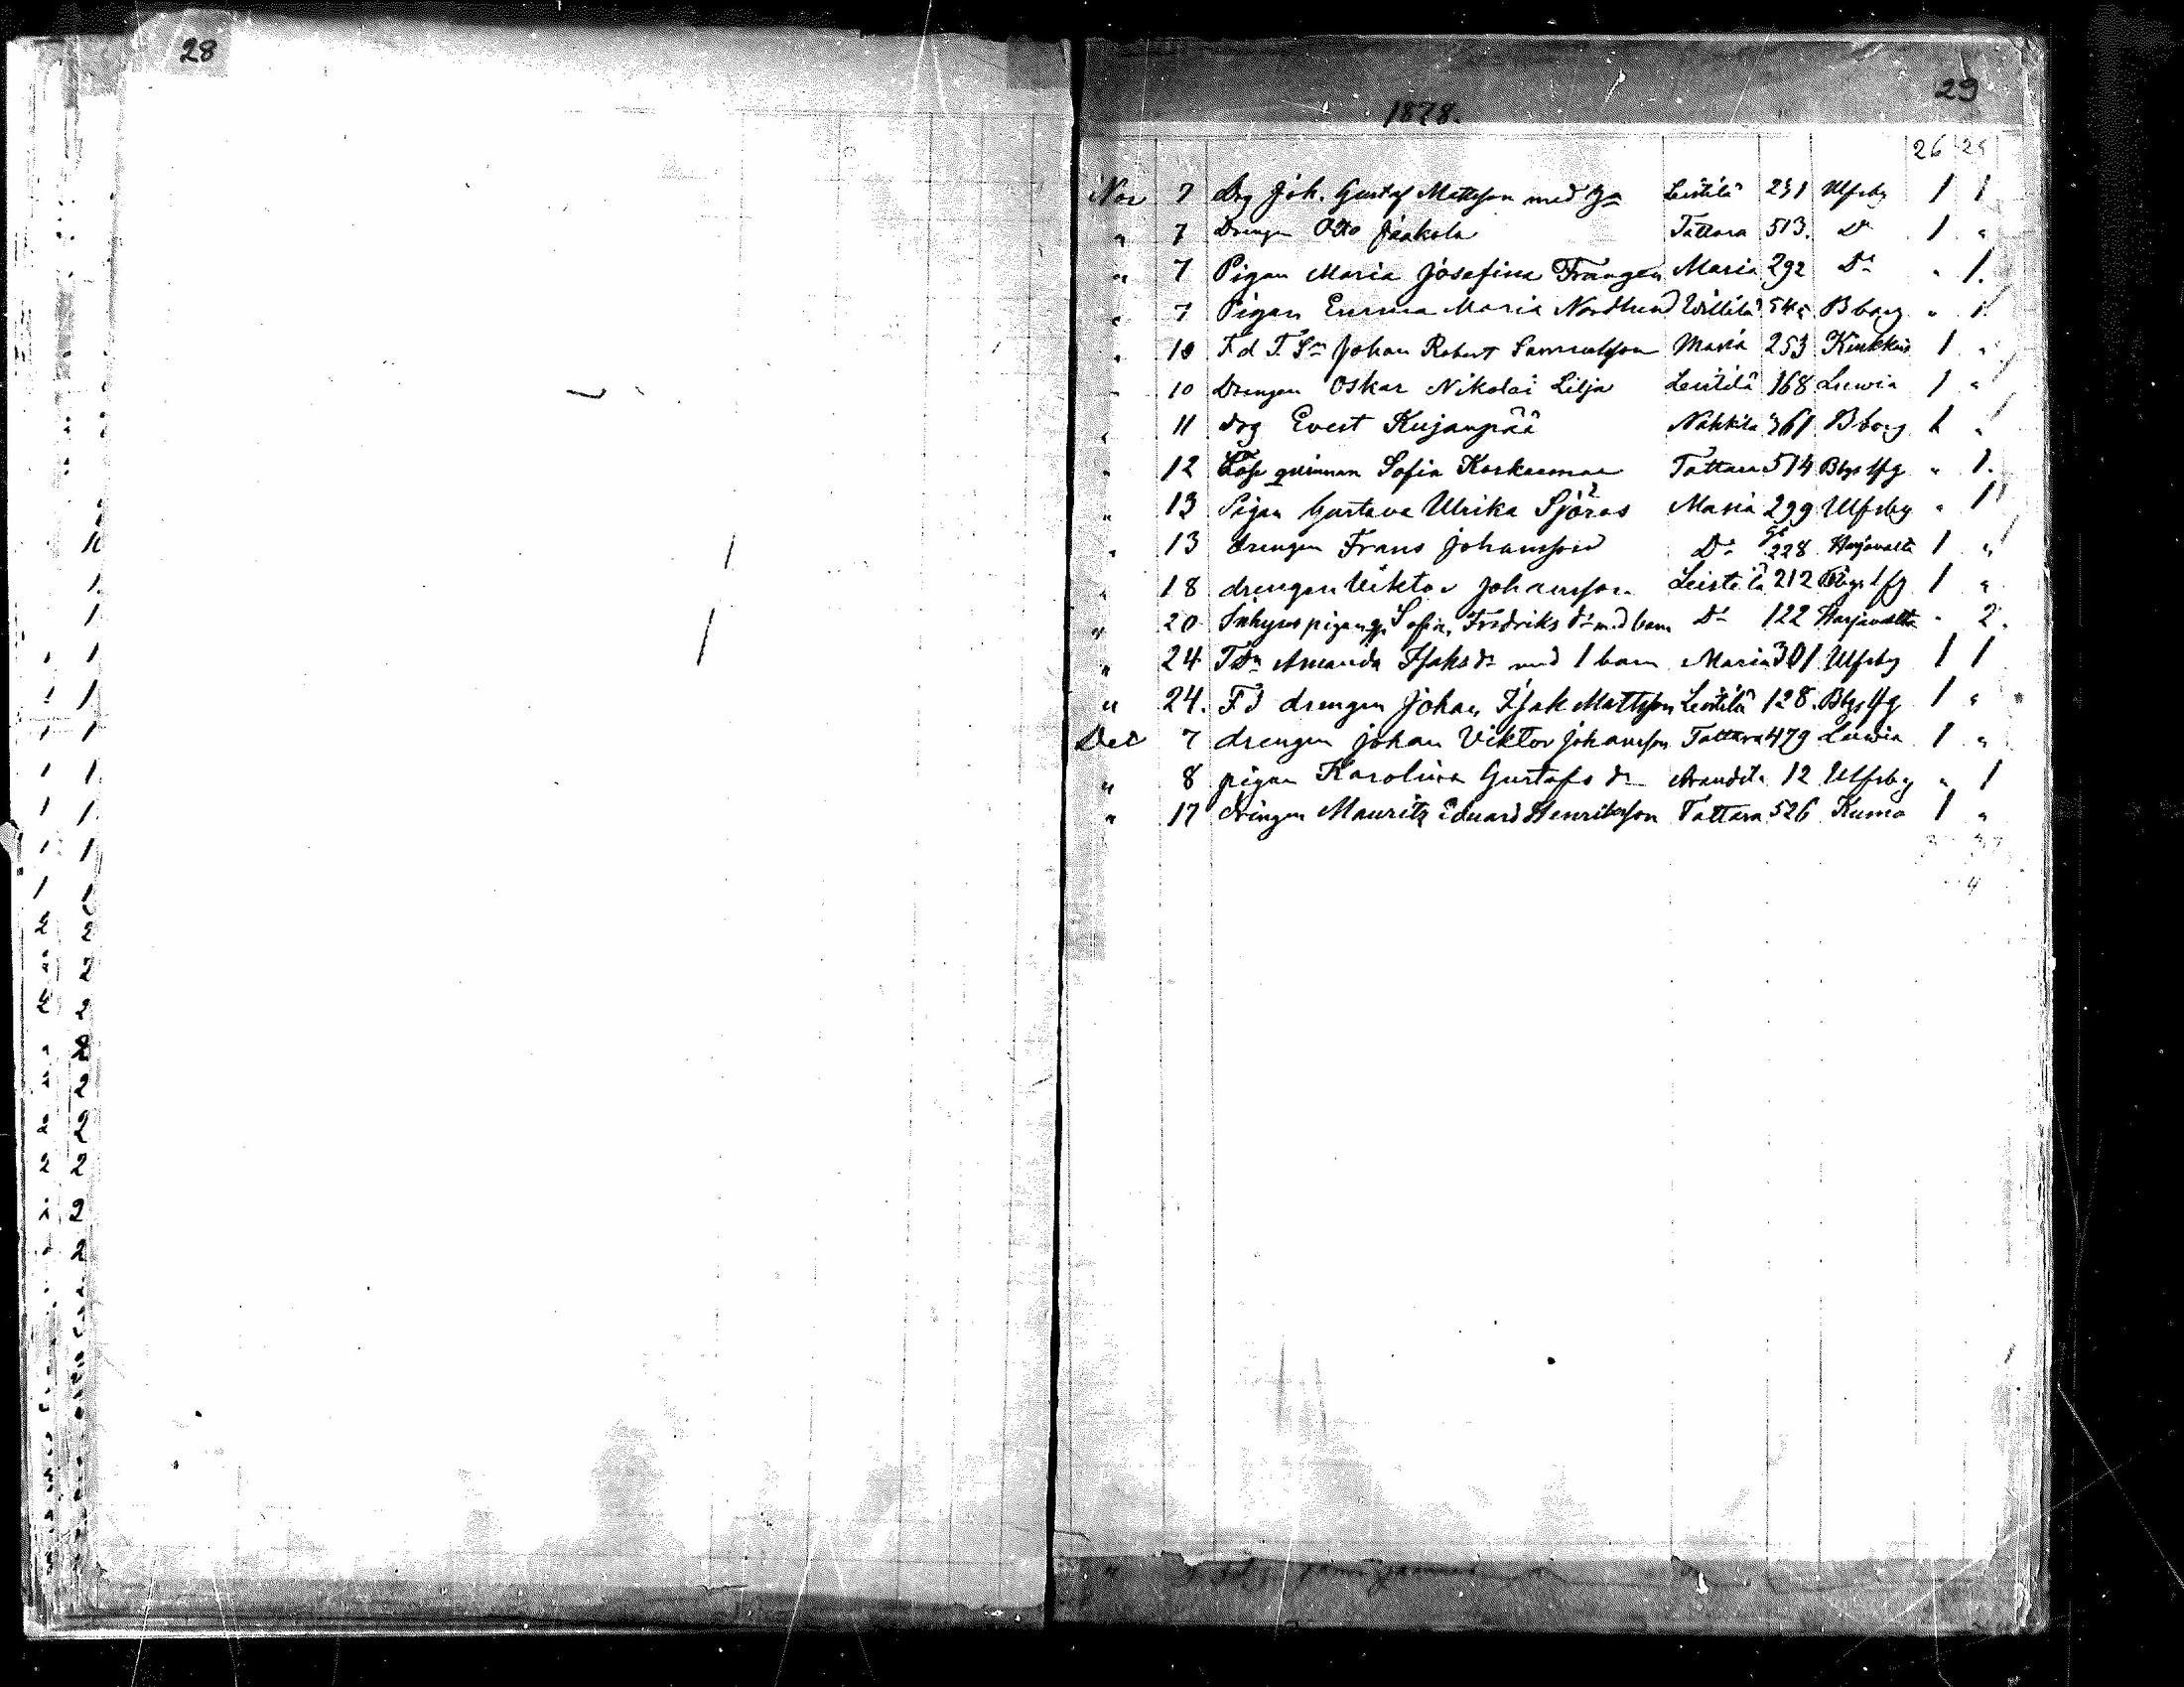 28
29
1878.
26 25
Nov 7 Drg Joh. Gustaf Mattsson med Leistilä 251 Ulfsby 1 1
" 7 Drengen Otto Jaakola Tattara 513. Do 1 "
" 7 Pigan Maria Josefina Frangen Maria 292 Do " 1.
" 7 Pigan Emma Maria Nordlund Willilä 545 Bborg " 1
" 10 F.d T. Sn Johan Robert Samuelsson Maria 253 Kiukkis 1 "
" 10 Drengen Oskar Nikolai Lilja Leistilä 168 Luwia 1 "
" 11 drg Evert Kujanpää Nakkila 361 Bborg 1 "
" 12 Lösa qvinnan Sofia Korkaamaa Tattara 514 Bbgs lfg " 1.
" 13 Pigan Gustava Ulrika Sjöros Maria 299 Ulfsby " 1
" 13 drengen Frans Johansson Do 228 Harjavalta 1 "
" 18 drengen Viktor Johansson Leistilä 212 Bbgs lfg 1 "
" 20 Inhyses pigan Sofia Fredriks dr med barn Do 122 Harjavalta " 2.
" 24 Amanda Isaks dr med 1 barn Maria 301 Ulfsby 1 1
" 24. F.d drengen Johan Isak Mattsson Leistilä 128. Bbgs lfg 1 "
Dec 7 drengen Johan Viktor Johansson Tattara 479 Luwia 1 "
" 8 pigan Karolina Gustafs dr Arandila 12 Ulfsby " 1
" 17 drengen Mauritz Eduard Henriksson Tattara 526 Kumo 1 "